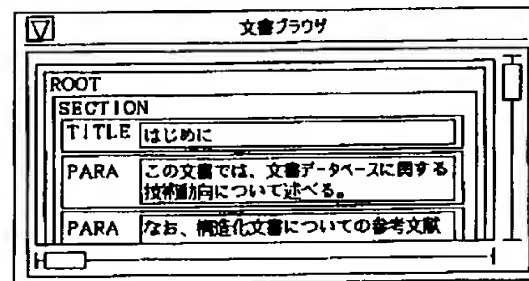 文書ブラウザ
ROOT
SECTION
TITLE はじめに
PARA この文書では、文書データベースに関する
技術動向について述べる。
PARA なお、構造化文書についての参考文献